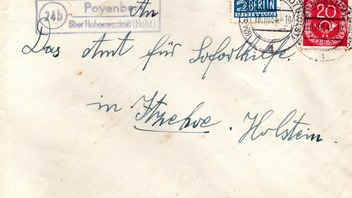 24b
Poyenbe
über Hohenwestedt (Holst)
An
2 BERLIN
20
Das Amt für Soforthilfe.
in Itzehoe.
Holstein.